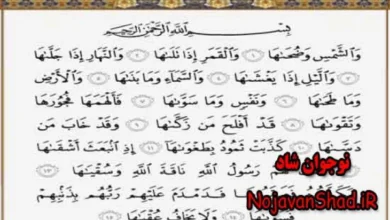 بِسْمِ اللَّهِ الرَّحْمَٰنِ الرَّحِيمِ
وَالشَّمْسِ وَضُحَىٰهَا ١ وَالْقَمَرِ إِذَا تَلَىٰهَا ٢ وَالنَّهَارِ إِذَا جَلَّىٰهَا
٣ وَاللَّيْلِ إِذَا يَغْشَىٰهَا ٤ وَالسَّمَاءِ وَمَا بَنَىٰهَا ٥ وَالْأَرْضِ
وَمَا طَحَىٰهَا ٦ وَنَفْسٍ وَمَا سَوَّىٰهَا ٧ فَأَلْهَمَهَا فُجُورَهَا
وَتَقْوَىٰهَا ٨ قَدْ أَفْلَحَ مَن زَكَّىٰهَا ٩ وَقَدْ خَابَ مَن
دَسَّىٰهَا ١٠ كَذَّبَتْ ثَمُودُ بِطَغْوَىٰهَا ١١ إِذِ انبَعَثَ أَشْقَىٰهَا
رَسُولُ اللَّهِ نَاقَةَ اللَّهِ وَسُقْيَىٰهَا ١٣
فَدَمْدَمَ عَلَيْهِمْ رَبُّهُم بِذَنبِهِمْ
وَلَا يَخَافُ عُقْبَىٰهَا ١٥
نوجوان شاد
NojavanShad.IR